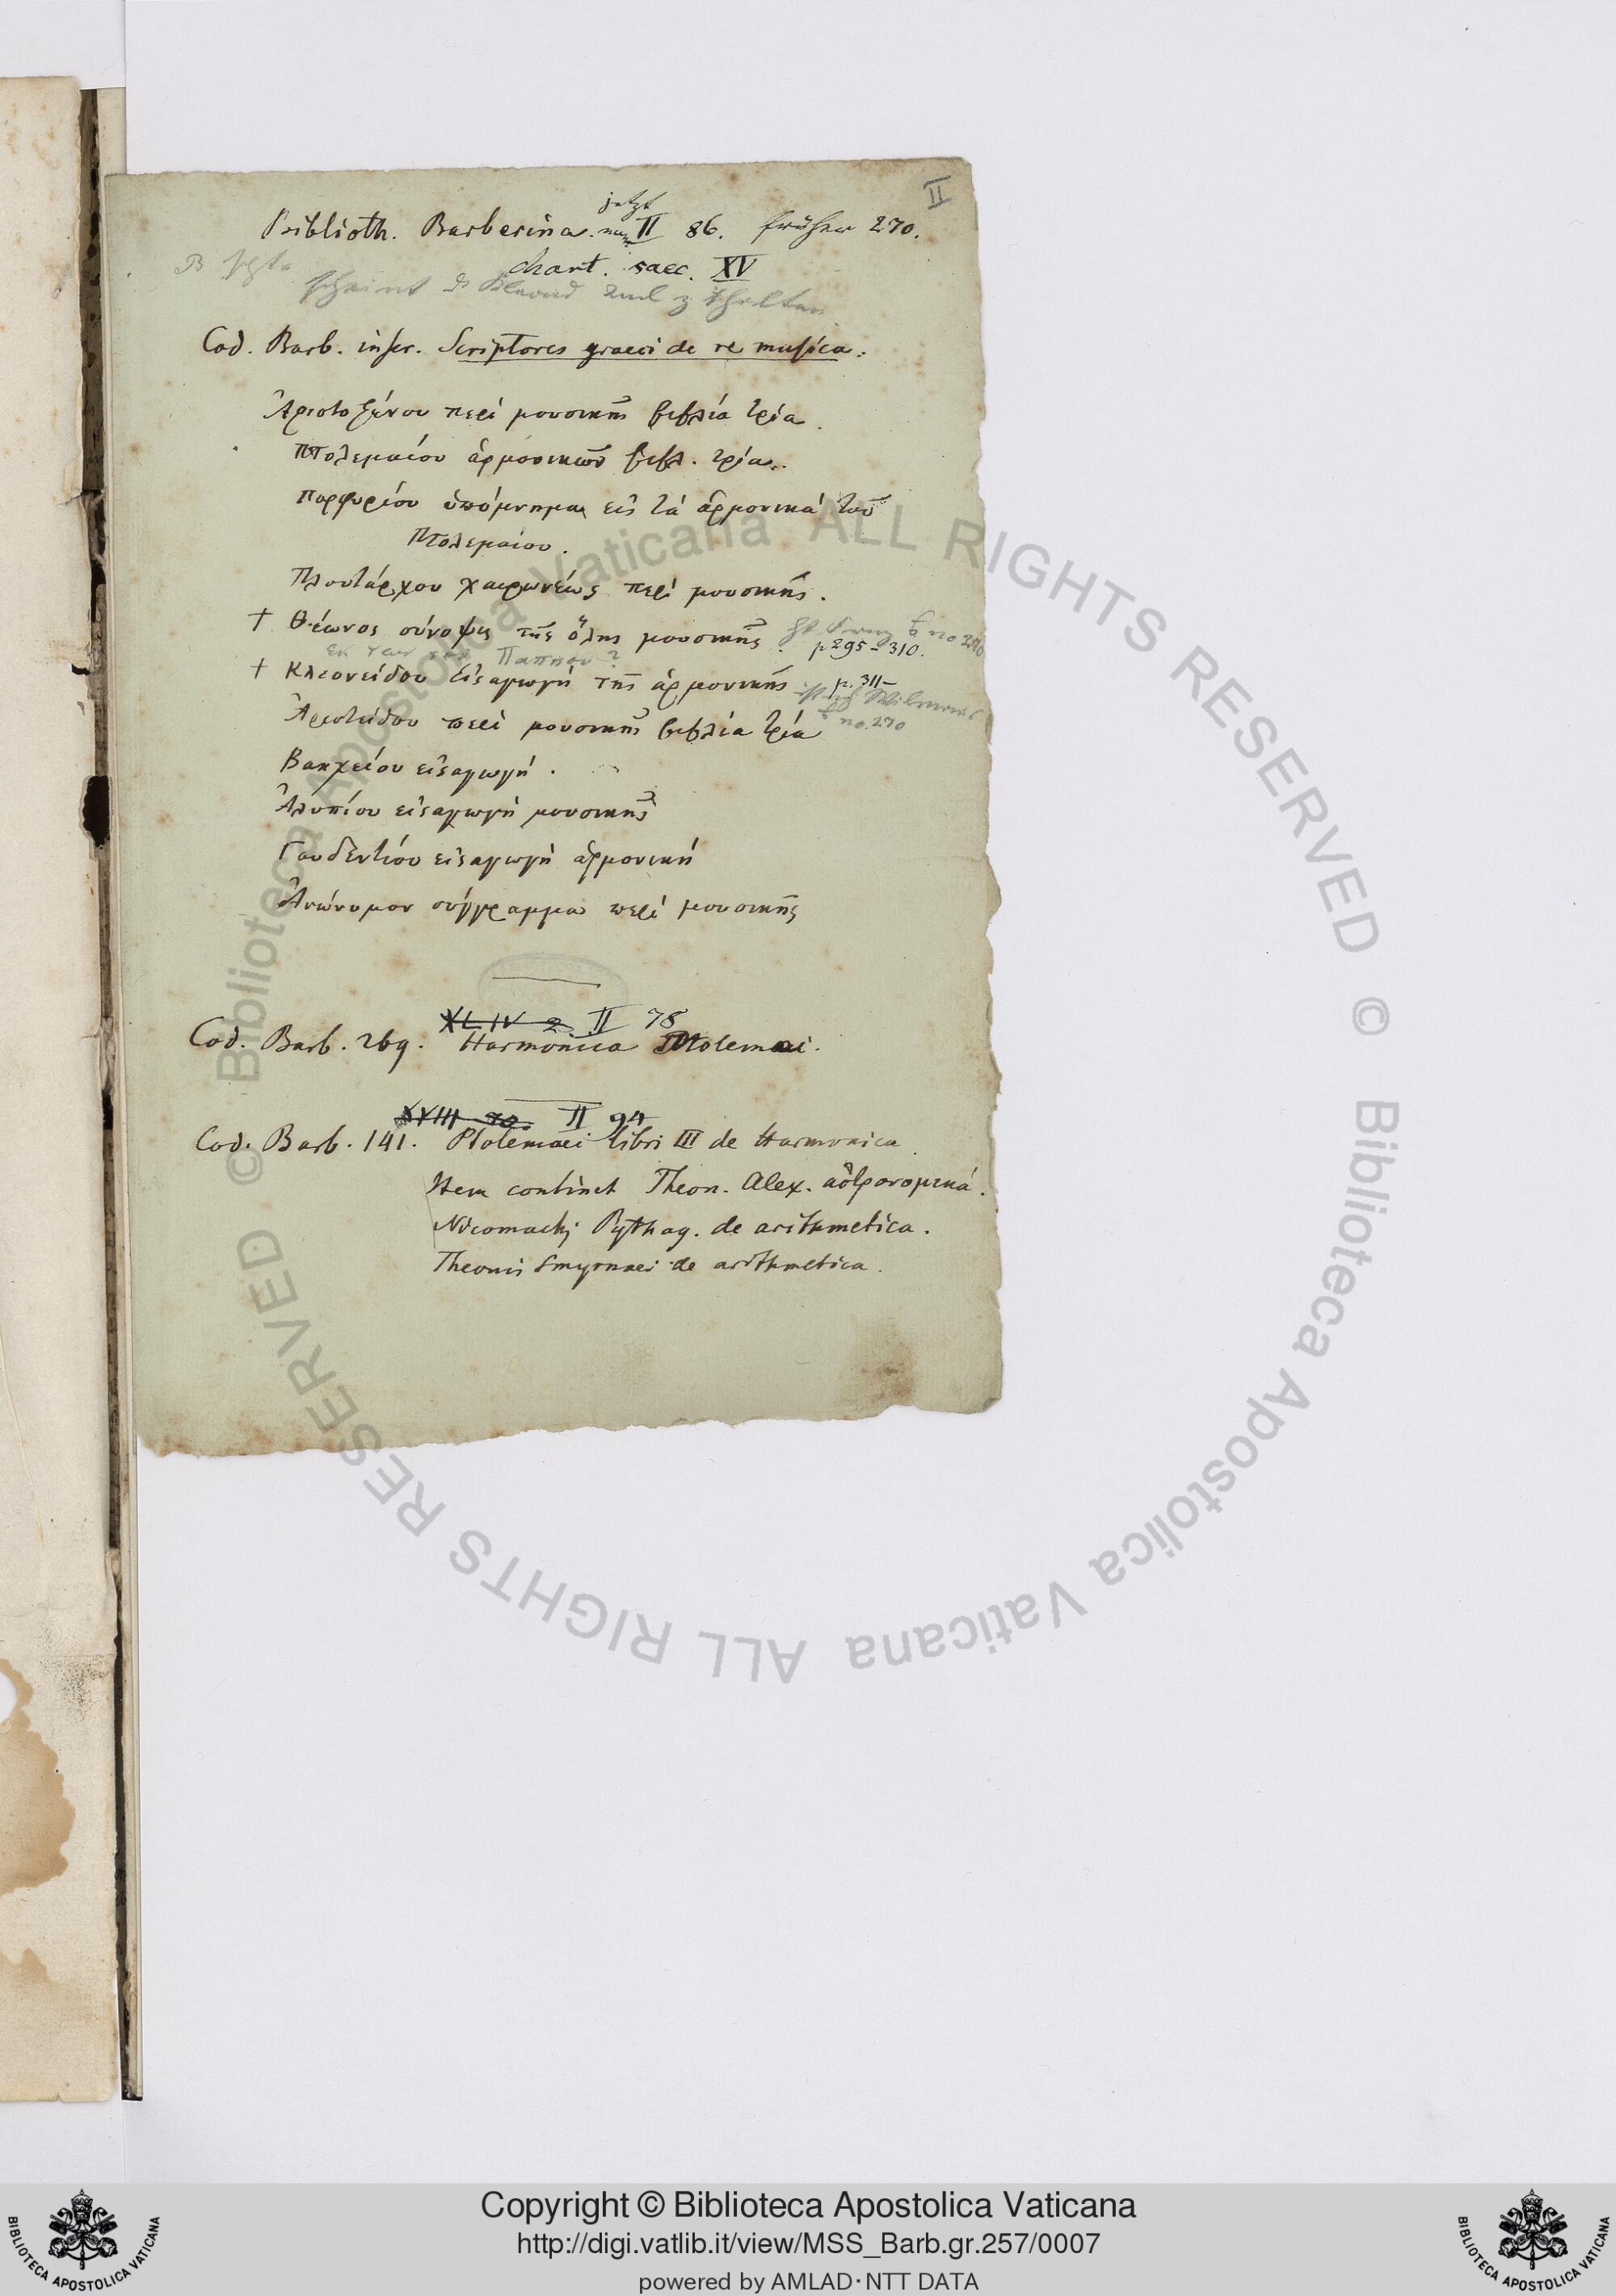 II
jetzt
Biblioth. Barberina. II 86. früher 270.
chart. saec. XV
scheint
Cod. Barb. inscr. Scriptores graeci de re musica.
Ἀριστοξένου περὶ μουσικῆς βιβλία τρία.
Πτολεμαίου ἁρμονικῶν βιβλ. τρία.
Πορφυρίου ὑπόμνημα εἰς τὰ ἁρμονικὰ τοῦ
Πτολεμαίου.
Πλουτάρχου χαιρωνέως περὶ μουσικῆς.
+ Θέωνος σύνοψις τῆς ὅλης μουσικῆς. no 270
p 295-310.
Παππου?
+ Κλεονείδου εἰσαγωγὴ τῆς ἁρμονικῆς p. 311-
no. 270
Ἀριστείδου περὶ μουσικῆς βιβλία τρία
Βακχείου εἰσαγωγή.
Ἀλυπίου εἰσαγωγὴ μουσικῆς
Γαυδεντίου εἰσαγωγὴ ἁρμονική
Ἀνώνυμον σύγγραμμα περὶ μουσικῆς
XLIV 2 II 78
Cod. Barb. 269. Harmonica Ptolemaei.
XVIII 20. II 94
Cod. Barb. 141. Ptolemaei libri III de Harmonica
Item continet Theon. Alex. ἀστρονομικά.
Nicomachi Pythag. de arithmetica.
Theonis Smyrnaei de arithmetica.
© Biblioteca Apostolica Vaticana ALL RIGHTS RESERVED © Biblioteca Apostolica Vaticana ALL RIGHTS RESERVED
Copyright © Biblioteca Apostolica Vaticana
http://digi.vatlib.it/view/MSS_Barb.gr.257/0007
powered by AMLAD·NTT DATA
BIBLIOTECA APOSTOLICA VATICANA
BIBLIOTECA APOSTOLICA VATICANA